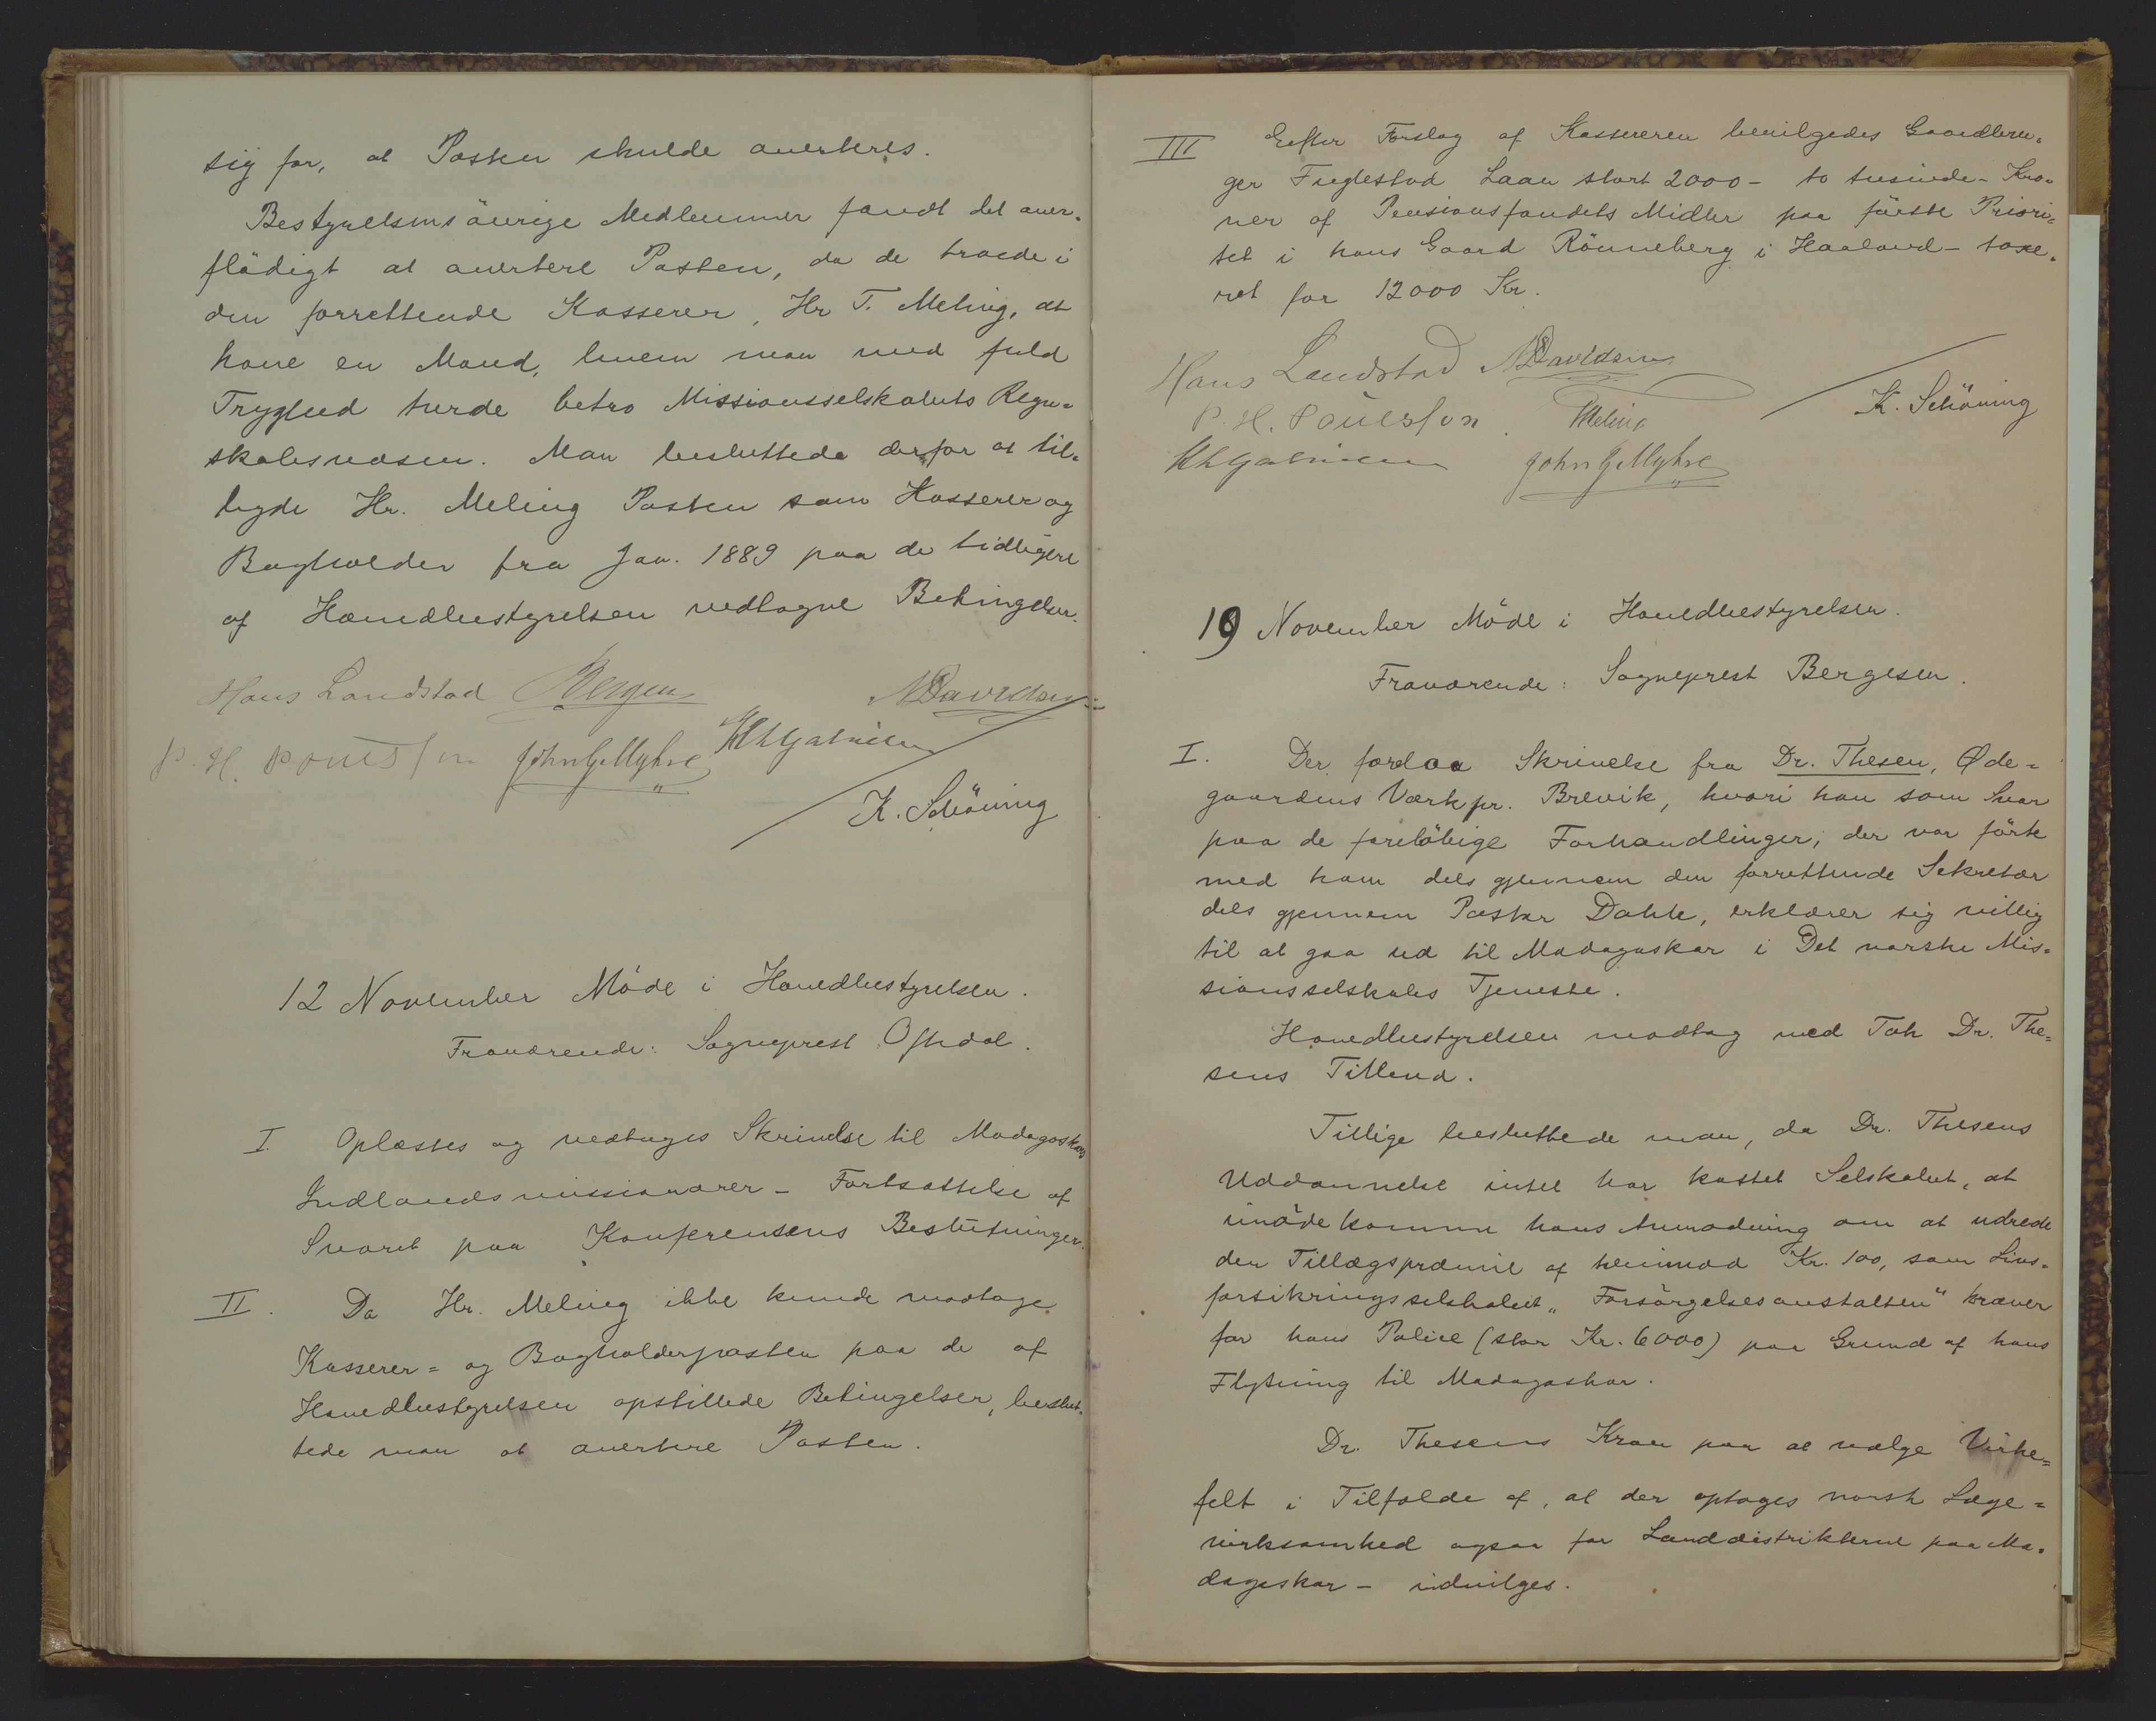 sig for, at Posten skulde averteres.
Bestyrelsens övrige Medlemmer fandt det over-
flödigt at avertere Posten, da de troede i
den forrettende Kasserer, Hr T. Meling, at
have en Mand, hvem man med fuld
Tryghed turde betro Missionsselskabets Regn-
skabsvæsen. Man besluttede derfor at til-
byde Hr. Meling Posten som Kasserer og
Bogholder fra Jan. 1889 paa de tidligere
af Hovedbestyrelsen vedtagne Betingelser.
Hans Landstad Bergesen N Davidsen
P. H. Pouelsson John G Myhre
K. Schöning
12 November Möde i Hovedbestyrelsen.
Fraværende: Sogneprest Oftedal.
I. Oplæstes og vedtoges Skrivelse til Madagaskars
Indlandsmissionærer - Fortsættelse af
Svaret paa Konferensens Beslutninger.
II. Da Hr. Meling ikke kunde modtage
Kasserer= og Bogholderposten paa de af
Hovedbestyrelsen opstillede Betingelser, beslut-
tede man at avertere Posten.
III Efter Forslag af Kassereren bevilgedes Gaardbru-
ger Fuglestad Laan stort 2000 - to tusinde - Kro-
ner af Pensionsfondets Midler paa förste Priori-
tet i hans Gaard Rönneberg i Haaland - taxe-
ret for 12000 Kr.
Hans Landstad N Davidsen
P. H. Pouelsson. T Meling K. Schöning
John G Myhre
19 November Möde i Hovedbestyrelsen.
Fraværende: Sogneprest Bergesen.
I. Der forelaa Skrivelse fra Dr. Thesen, Øde=
gaardens Værk pr. Brevik, hvori han som Svar
paa de forelöbige Forhandlinger, der var förte
med ham dels gjennem den forrettende Sekretær
dels gjennem Pastor Dahle, erklærer sig villig
til at gaa ud til Madagaskar i Det norske Mis-
sionsselskabs Tjeneste.
Hovedbestyrelsen modtog med Tak Dr. The=
sens Tilbud.
Tillige besluttede man, da Dr. Thesens
Uddannelse intet har kostet Selskabet, at
imödekomme hans Anmodning om at udrede
den Tillægspræmie af henimod Kr. 100, som Livs-
forsikringsselskabet "Forsörgelsesanstalten" kræver
for hans Police (stor Kr. 6000) paa Grund af hans
Flytning til Madagaskar.
Dr. Thesens Krav paa at vælge Virke=
felt i Tilfælde af, at der optages norsk Læge=
virksomhed ogsaa for Landdistrikterne paa Ma-
dagaskar - indvilges.